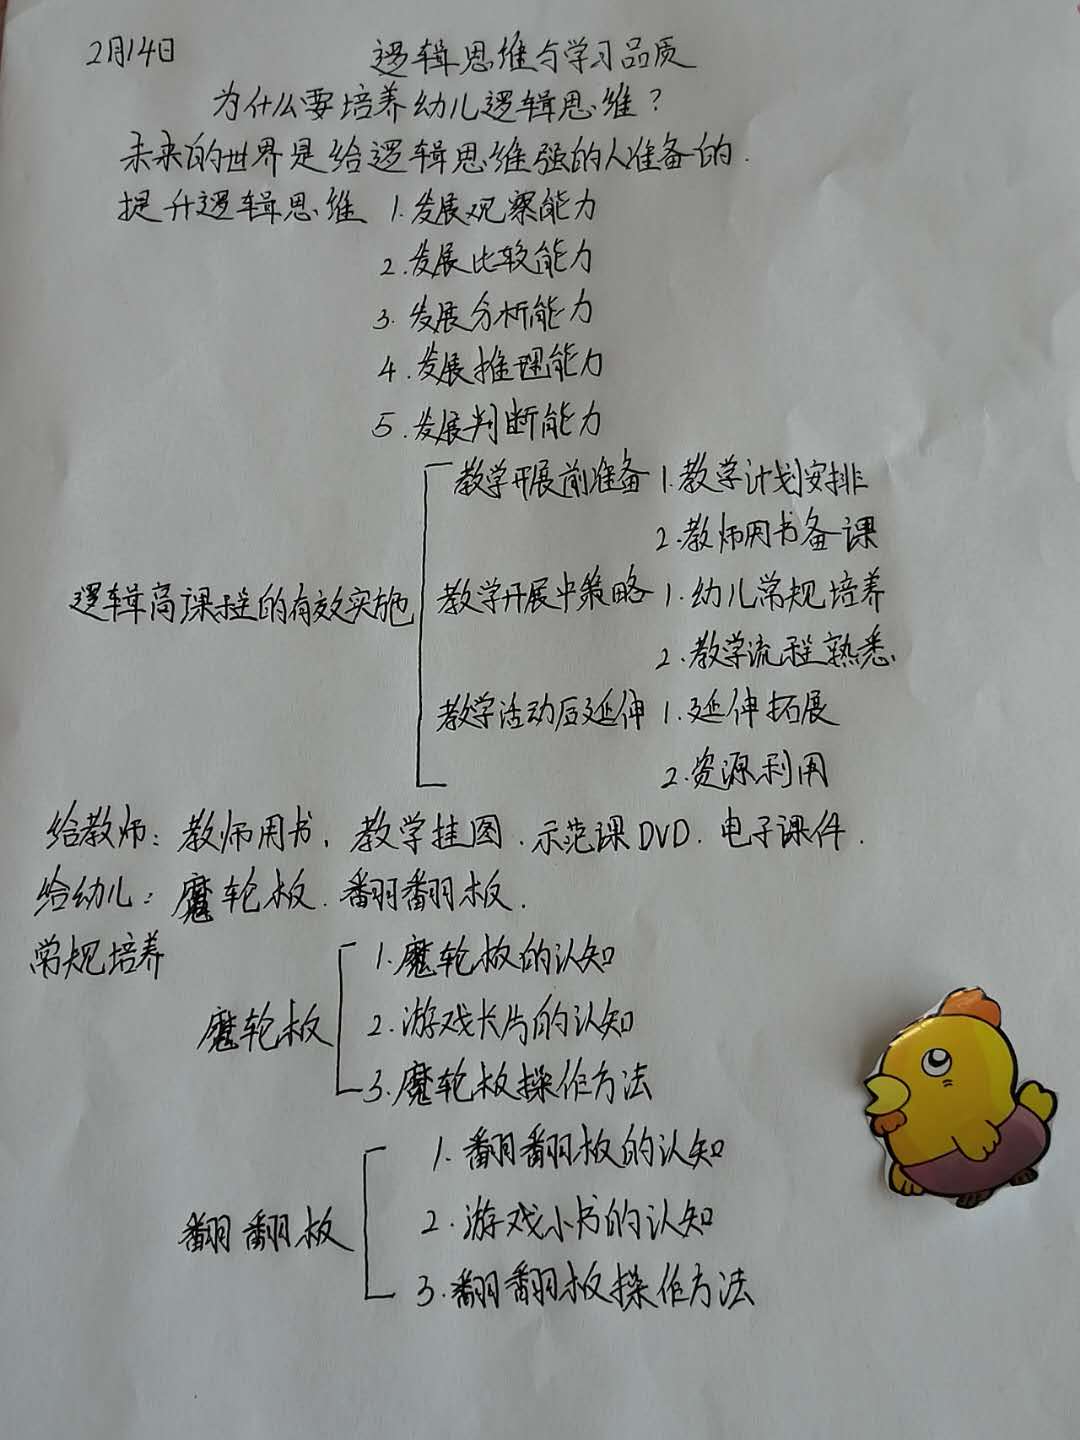 2月14日 逻辑思维与学习品质
为什么要培养幼儿逻辑思维？
未来的世界是给逻辑思维强的人准备的.
提升逻辑思维 1.发展观察能力
2.发展比较能力
3.发展分析能力
4.发展推理能力
5.发展判断能力
教学开展前准备 1.教学计划安排
2.教师用书备课
逻辑高课程的有效实施 教学开展中策略 1.幼儿常规培养
2.教学流程熟悉.
教学活动后延伸 1.延伸拓展
2.资源利用
给教师：教师用书、教学挂图.示范课DVD.电子课件.
给幼儿：魔轮板.翻翻板.
常规培养
1.魔轮板的认知
魔轮板 2.游戏卡片的认知
3.魔轮板操作方法
1.翻翻板的认知
翻翻板 2.游戏小书的认知
3.翻翻板操作方法